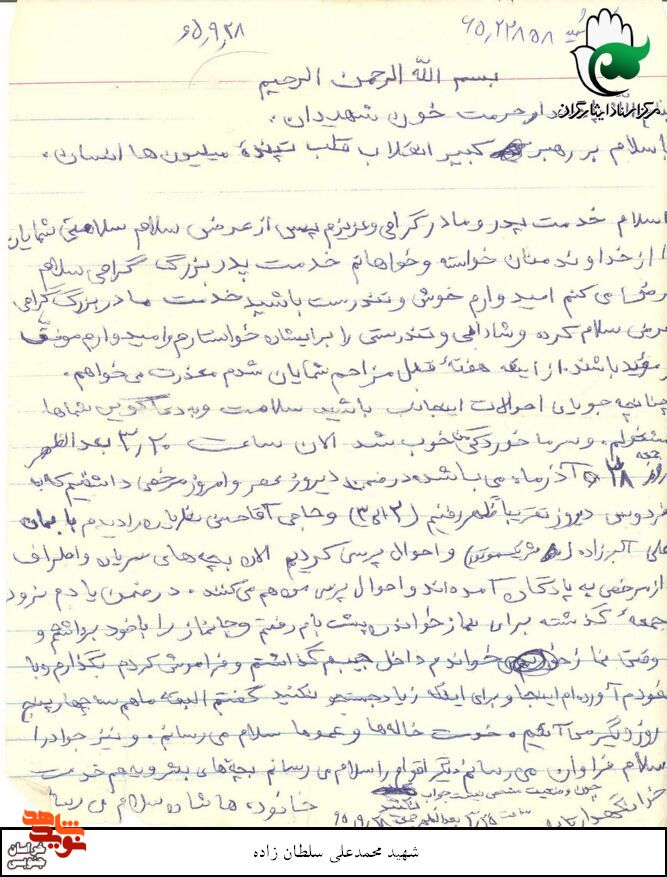 ۶۵٫۹٫۲۸
۶۵٫۲۲۸۵۸
مرکز اسناد ایثارگران
بسم الله الرحمن الرحیم
پاسدار حرمت خون شهیدان.
باسلام بر رهبر کبیر انقلاب قلب تپنده میلیون ها انسان.
باسلام خدمت پدر و مادر گرامی و عزیزم پس از عرض سلام سلامتی شمایان
را از خداوند منان خواسته و خواهانم خدمت پدر بزرگ گرامی سلام
عرض می کنم امیدوارم خوش و تندرست باشید خدمت مادر بزرگ گرامی
عرض سلام کرده و شادابی و تندرستی را برایشان خواستارم امیدوارم موفق
و مؤید باشند. از اینکه هفته قبل مزاحم شمایان شدم معذرت می خواهم.
چنانچه جویای احوالات اینجانب باشید سلامت و به دعاگویی شماها
مشغولم. و سرماخوردگی من خوب شد الان ساعت ۳٫۲۰ بعدالظهر
روز جمعه ۲۸ آذرماه می باشد در ضمن دیروز عصر و امروز مرخصی داشتیم که به
فردوس دیروز تقریباً ظهر رفتیم و حاجی آقا حسنی را دیدم با
علی اکبرزاده و احوال پرسی کردیم الان بچه های سریان و اطراف
از مرخصی به پادگان آمده اند و احوال پرسی هم می کنند. در ضمن یادم نرود
جمعه گذشته برای نماز خواندن پشت بام رفتم و جانماز را با خود برداشتم و
وقتی نماز خواندم داخل جیبم گذاشتم و فراموش کردم بگذارم و با
خودم آورده ام اینجا و برای اینکه زیاد جستجو نکنید گفتم البته ما هم سه چهار پنج
روز دیگر می آئیم. خدمت خاله ها و عموها سلام می رسانم. و نیز جواد را
سلام فراوان می رسانم دیگر اقوام را سلام می رسانم بچه های
خانواده هاشان سلام می رسانند
چون وضعیت مشخص نیست جواب
۶۵٫۹٫۲۸
شاهد
نوید
خراسان جنوبی
شهید محمدعلی سلطان زاده